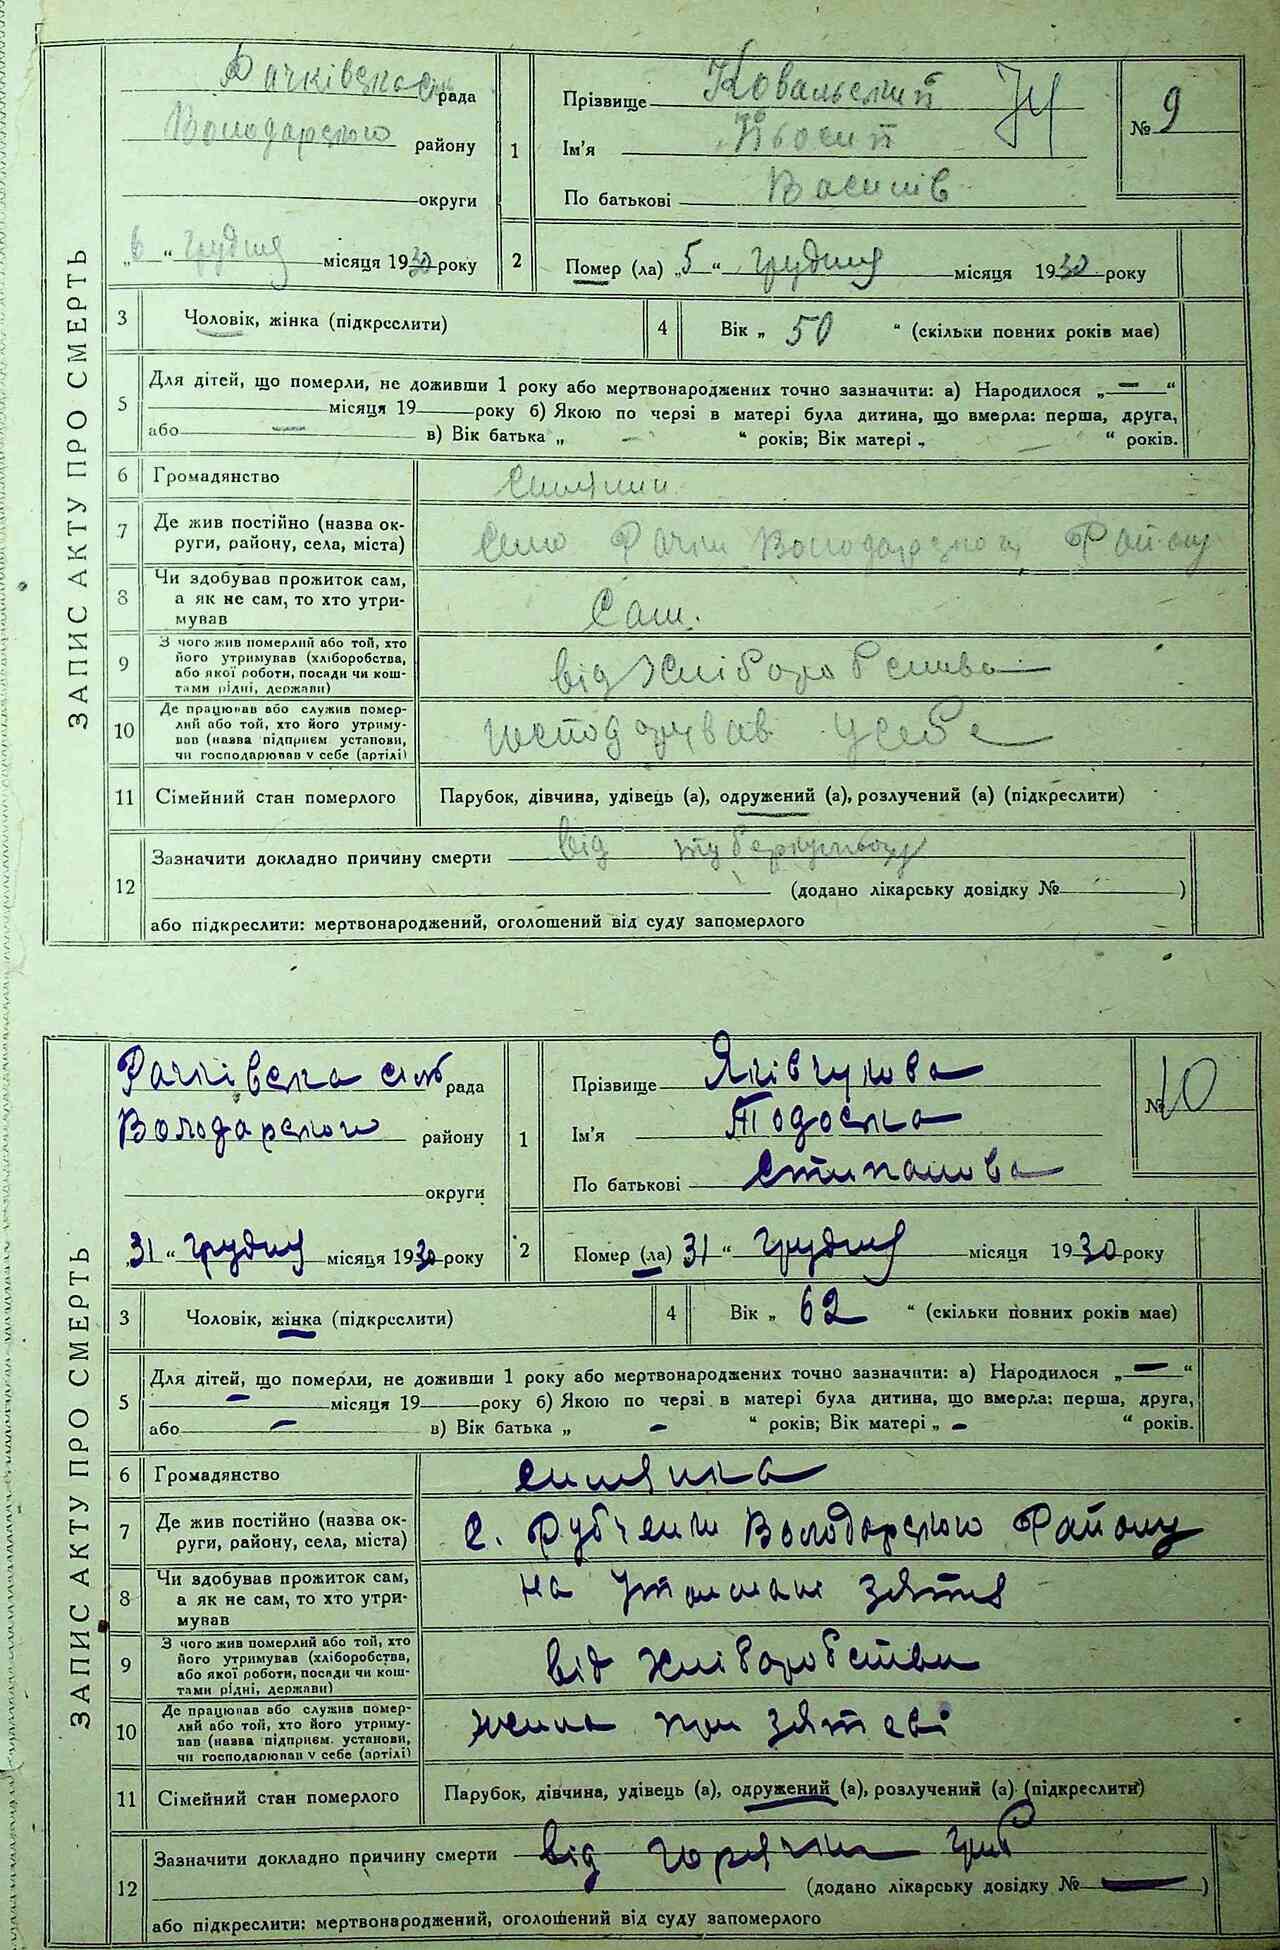 ЗАПИС АКТУ ПРО СМЕРТЬ
Рачківська сіль рада
Володарського району
округи
„6“ грудня місяця 1930 року
1 Прізвище Ковальский
Ім'я Йосип
По батькові Василів
№ 9
2 Помер (ла) „5“ грудня місяця 1930 року
3 Чоловік, жінка (підкреслити)
4 Вік „ 50 “ (скільки повних років має)
5 Для дітей, що померли, не доживши 1 року або мертвонароджених точно зазначити: а) Народилося „—“
місяця 19 року б) Якою по черзі в матері була дитина, що вмерла: перша, друга,
або — в) Вік батька „ - “ років; Вік матері „ - “ років.
6 Громадянство селянин
7 Де жив постійно (назва ок-
руги, району, села, міста) село Рачки Володарського Району
8 Чи здобував прожиток сам,
а як не сам, то хто утри-
мував Сам.
9 З чого жив померлий або той, хто
його утримував (хліборобства,
або якої роботи, посади чи кош-
тами рідні, держави) від хліборобства
10 Де працював або служив помер-
лий або той, хто його утриму-
вав (назва підприєм установи,
чи господарював у себе (артілі) господарував усебе
11 Сімейний стан померлого Парубок, дівчина, удівець (а), одружений (а), розлучений (а) (підкреслити)
12 Зазначити докладно причину смерти від туберкульозу
(додано лікарську довідку № )
або підкреслити: мертвонароджений, оголошений від суду запомерлого
ЗАПИС АКТУ ПРО СМЕРТЬ
Рачківська сіль рада
Володарського району
округи
„31“ грудня місяця 1930 року
1 Прізвище Яківчукова
Ім'я Тодоска
По батькові Стипанова
№ 10
2 Помер (ла) 31“ грудня місяця 1930 року
3 Чоловік, жінка (підкреслити)
4 Вік „ 62 “ (скільки повних років має)
5 Для дітей, що померли, не доживши 1 року або мертвонароджених точно зазначити: а) Народилося „—“
— місяця 19 року б) Якою по черзі в матері була дитина, що вмерла: перша, друга,
або — в) Вік батька „ - “ років; Вік матері „ - “ років.
6 Громадянство силянка
7 Де жив постійно (назва ок-
руги, району, села, міста) с. Рубченки Володарского Району
8 Чи здобував прожиток сам,
а як не сам, то хто утри-
мував на зятя
9 З чого жив померлий або той, хто
його утримував (хліборобства,
або якої роботи, посади чи кош-
тами рідні, держави) від хліборобства
10 Де працював або служив помер-
лий або той, хто його утриму-
вав (назва підприєм. установи,
чи господарював у себе (артілі) жила при зятеві
11 Сімейний стан померлого Парубок, дівчина, удівець (а), одружений (а), розлучений (а) (підкреслити)
12 Зазначити докладно причину смерти від горячки
(додано лікарську довідку № — )
або підкреслити: мертвонароджений, оголошений від суду запомерлого